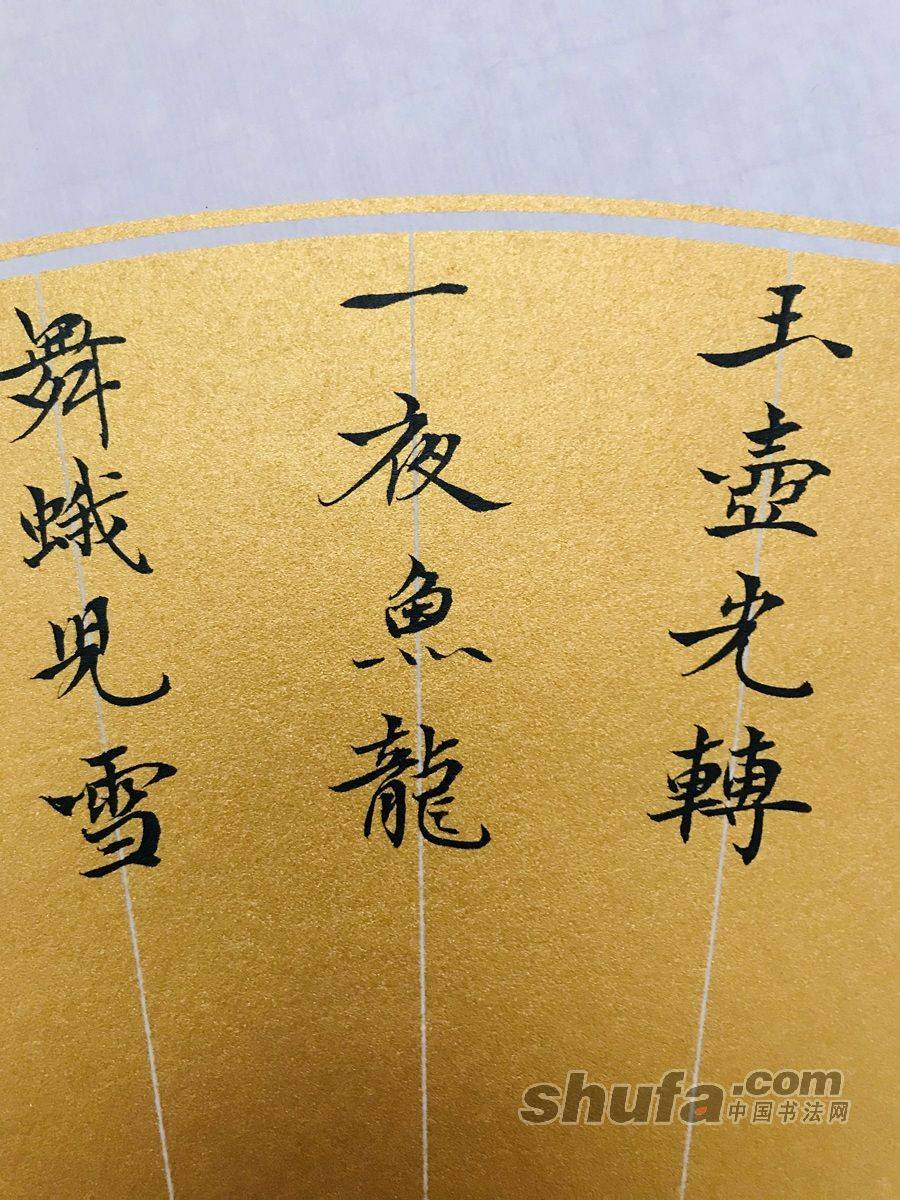 玉壺光轉
一夜魚龍
舞蛾兒雪
shufa.com
中国书法网